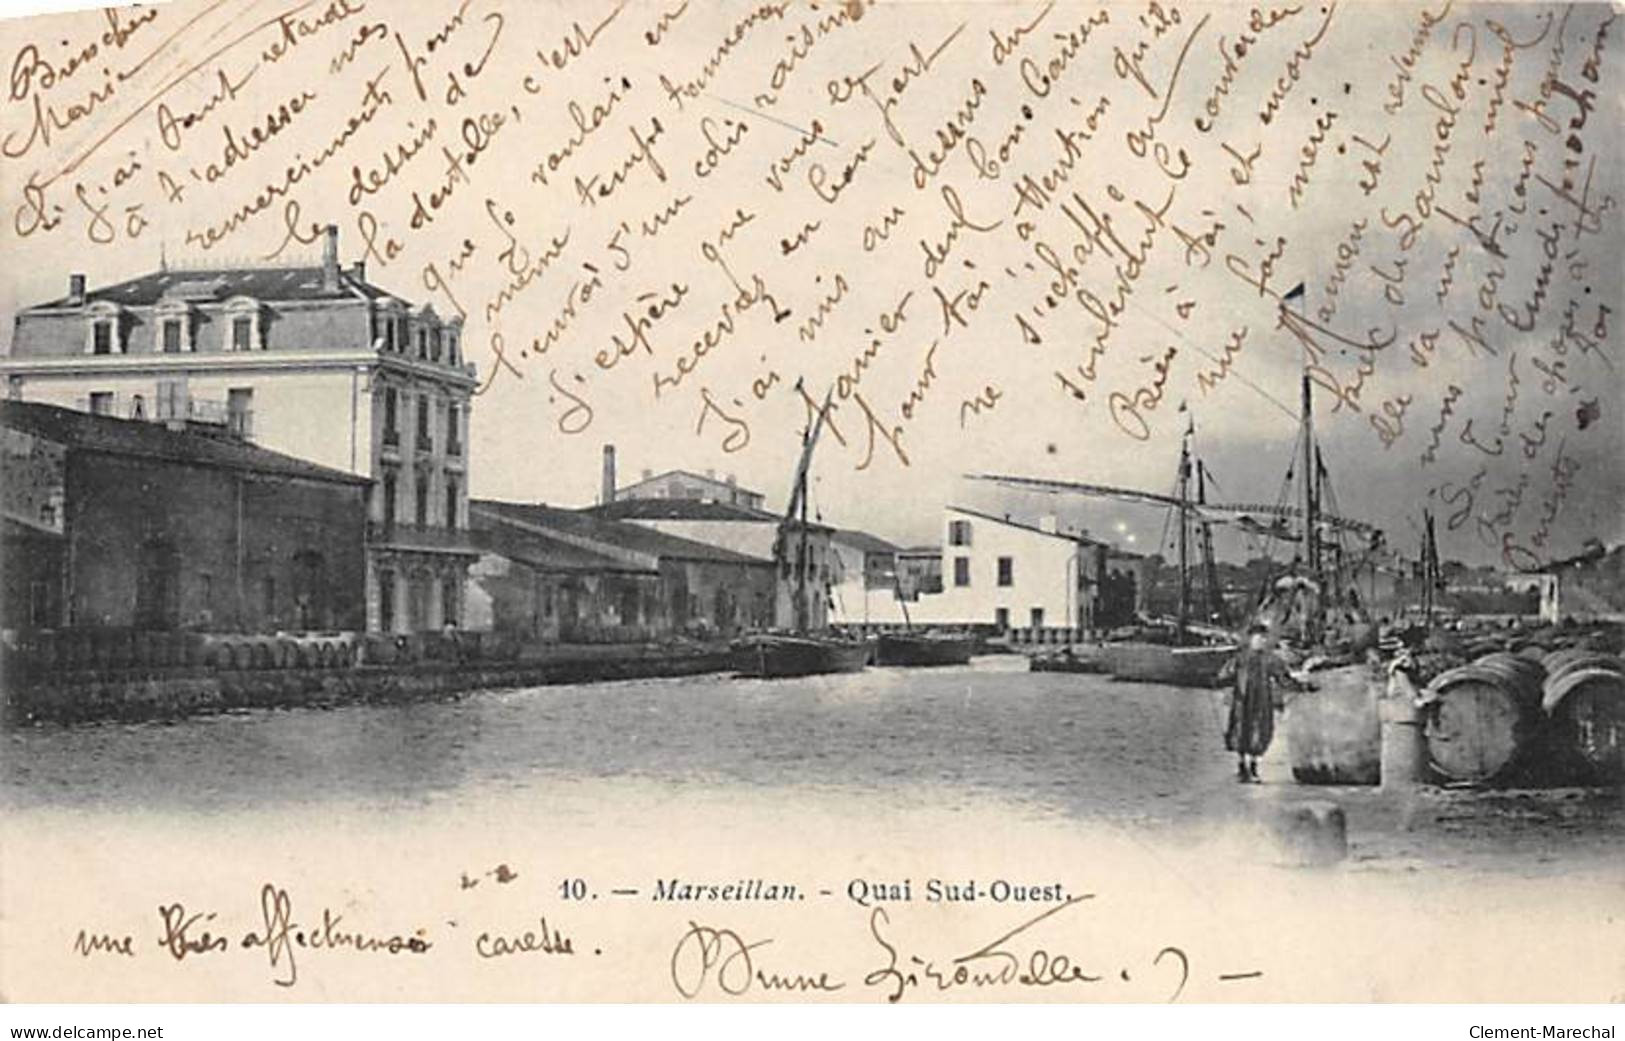 Bien chère
Marie
Si j'ai tant retardé
à t'adresser mes
remerciements pour
le dessin de
la dentelle, c'est
que je voulais en
même temps t'annoncer
l'envoi d'un colis raisins.
J'espère que vous le
recevrez en bon port
J'ai mis au dessus du
panier deux bons baisers
pour toi attention qu'ils
ne s'échappe au
soulevant le couvercle.
Bien à toi et encore
une fois merci.
Maman est revenue
hier de Lamalou
elle va un peu mieux
nous partirons pour
La Tour lundi prochain
Bien des choses à tes
Parents à toi
une très affectueuse caresse.
10. — Marseillan. - Quai Sud-Ouest.
Brune Hirondelle.
www.delcampe.net
Clement-Marechal